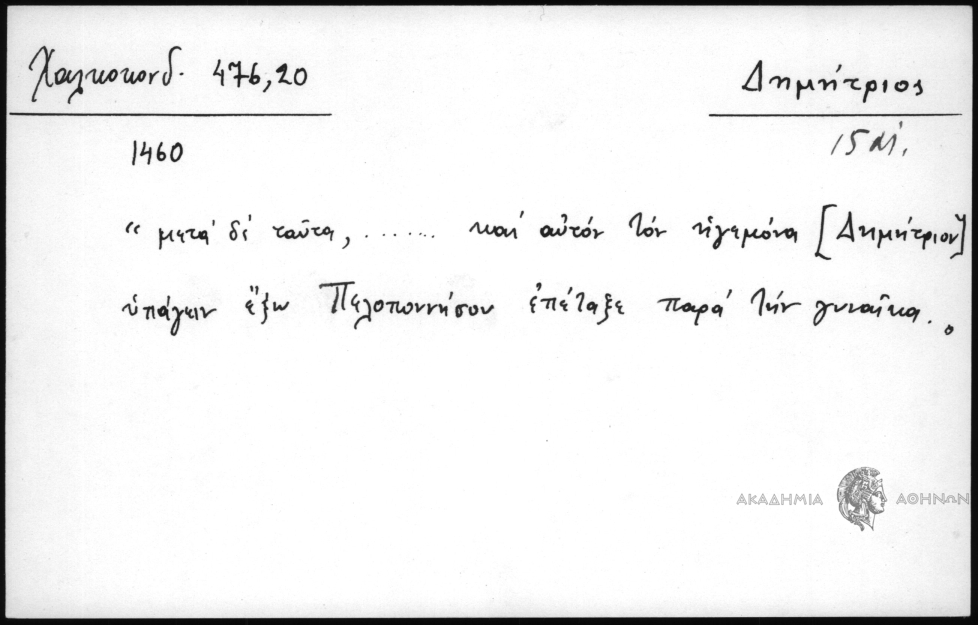 Χαλκοκονδ. 476,20
Δημήτριος
1460
15 αἰ.
“ μετά δέ ταῦτα, ....... καί αὐτόν τόν ἡγεμόνα [Δημήτριον]
ὑπάγειν ἔξω Πελοποννήσου ἐπέταξε παρά τήν γυναῖκα.
ΑΚΑΔΗΜΙΑ ΑΘΗΝΩΝ